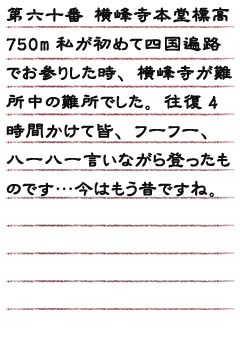 第六十番 横峰寺本堂標高
750m 私が初めて四国遍路
でお参りした時、横峰寺が難
所中の難所でした。往復 4
時間かけて皆、フーフー、
ハーハー言いながら登ったも
のです…今はもう昔ですね。